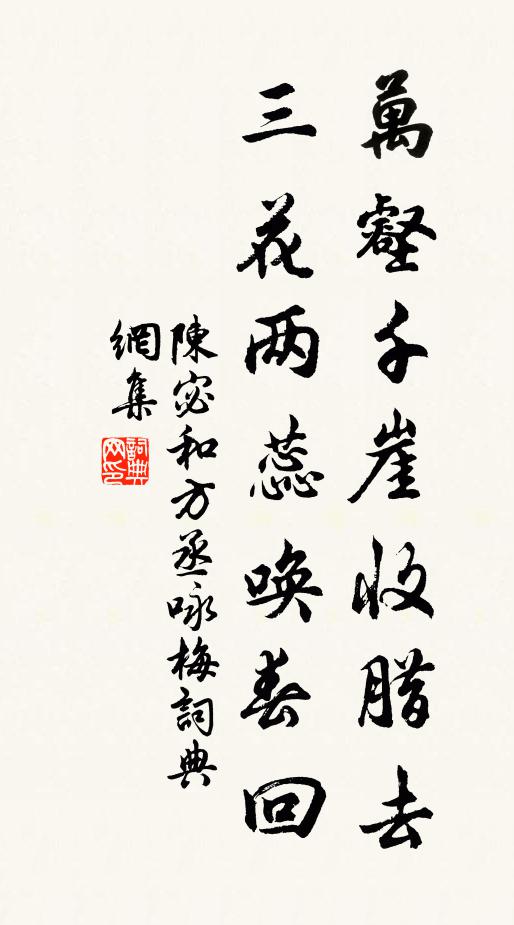 萬壑千崖收腊去
三花两蕊喚春回
陳宓和方丞咏梅詞典
網集
詞典網印